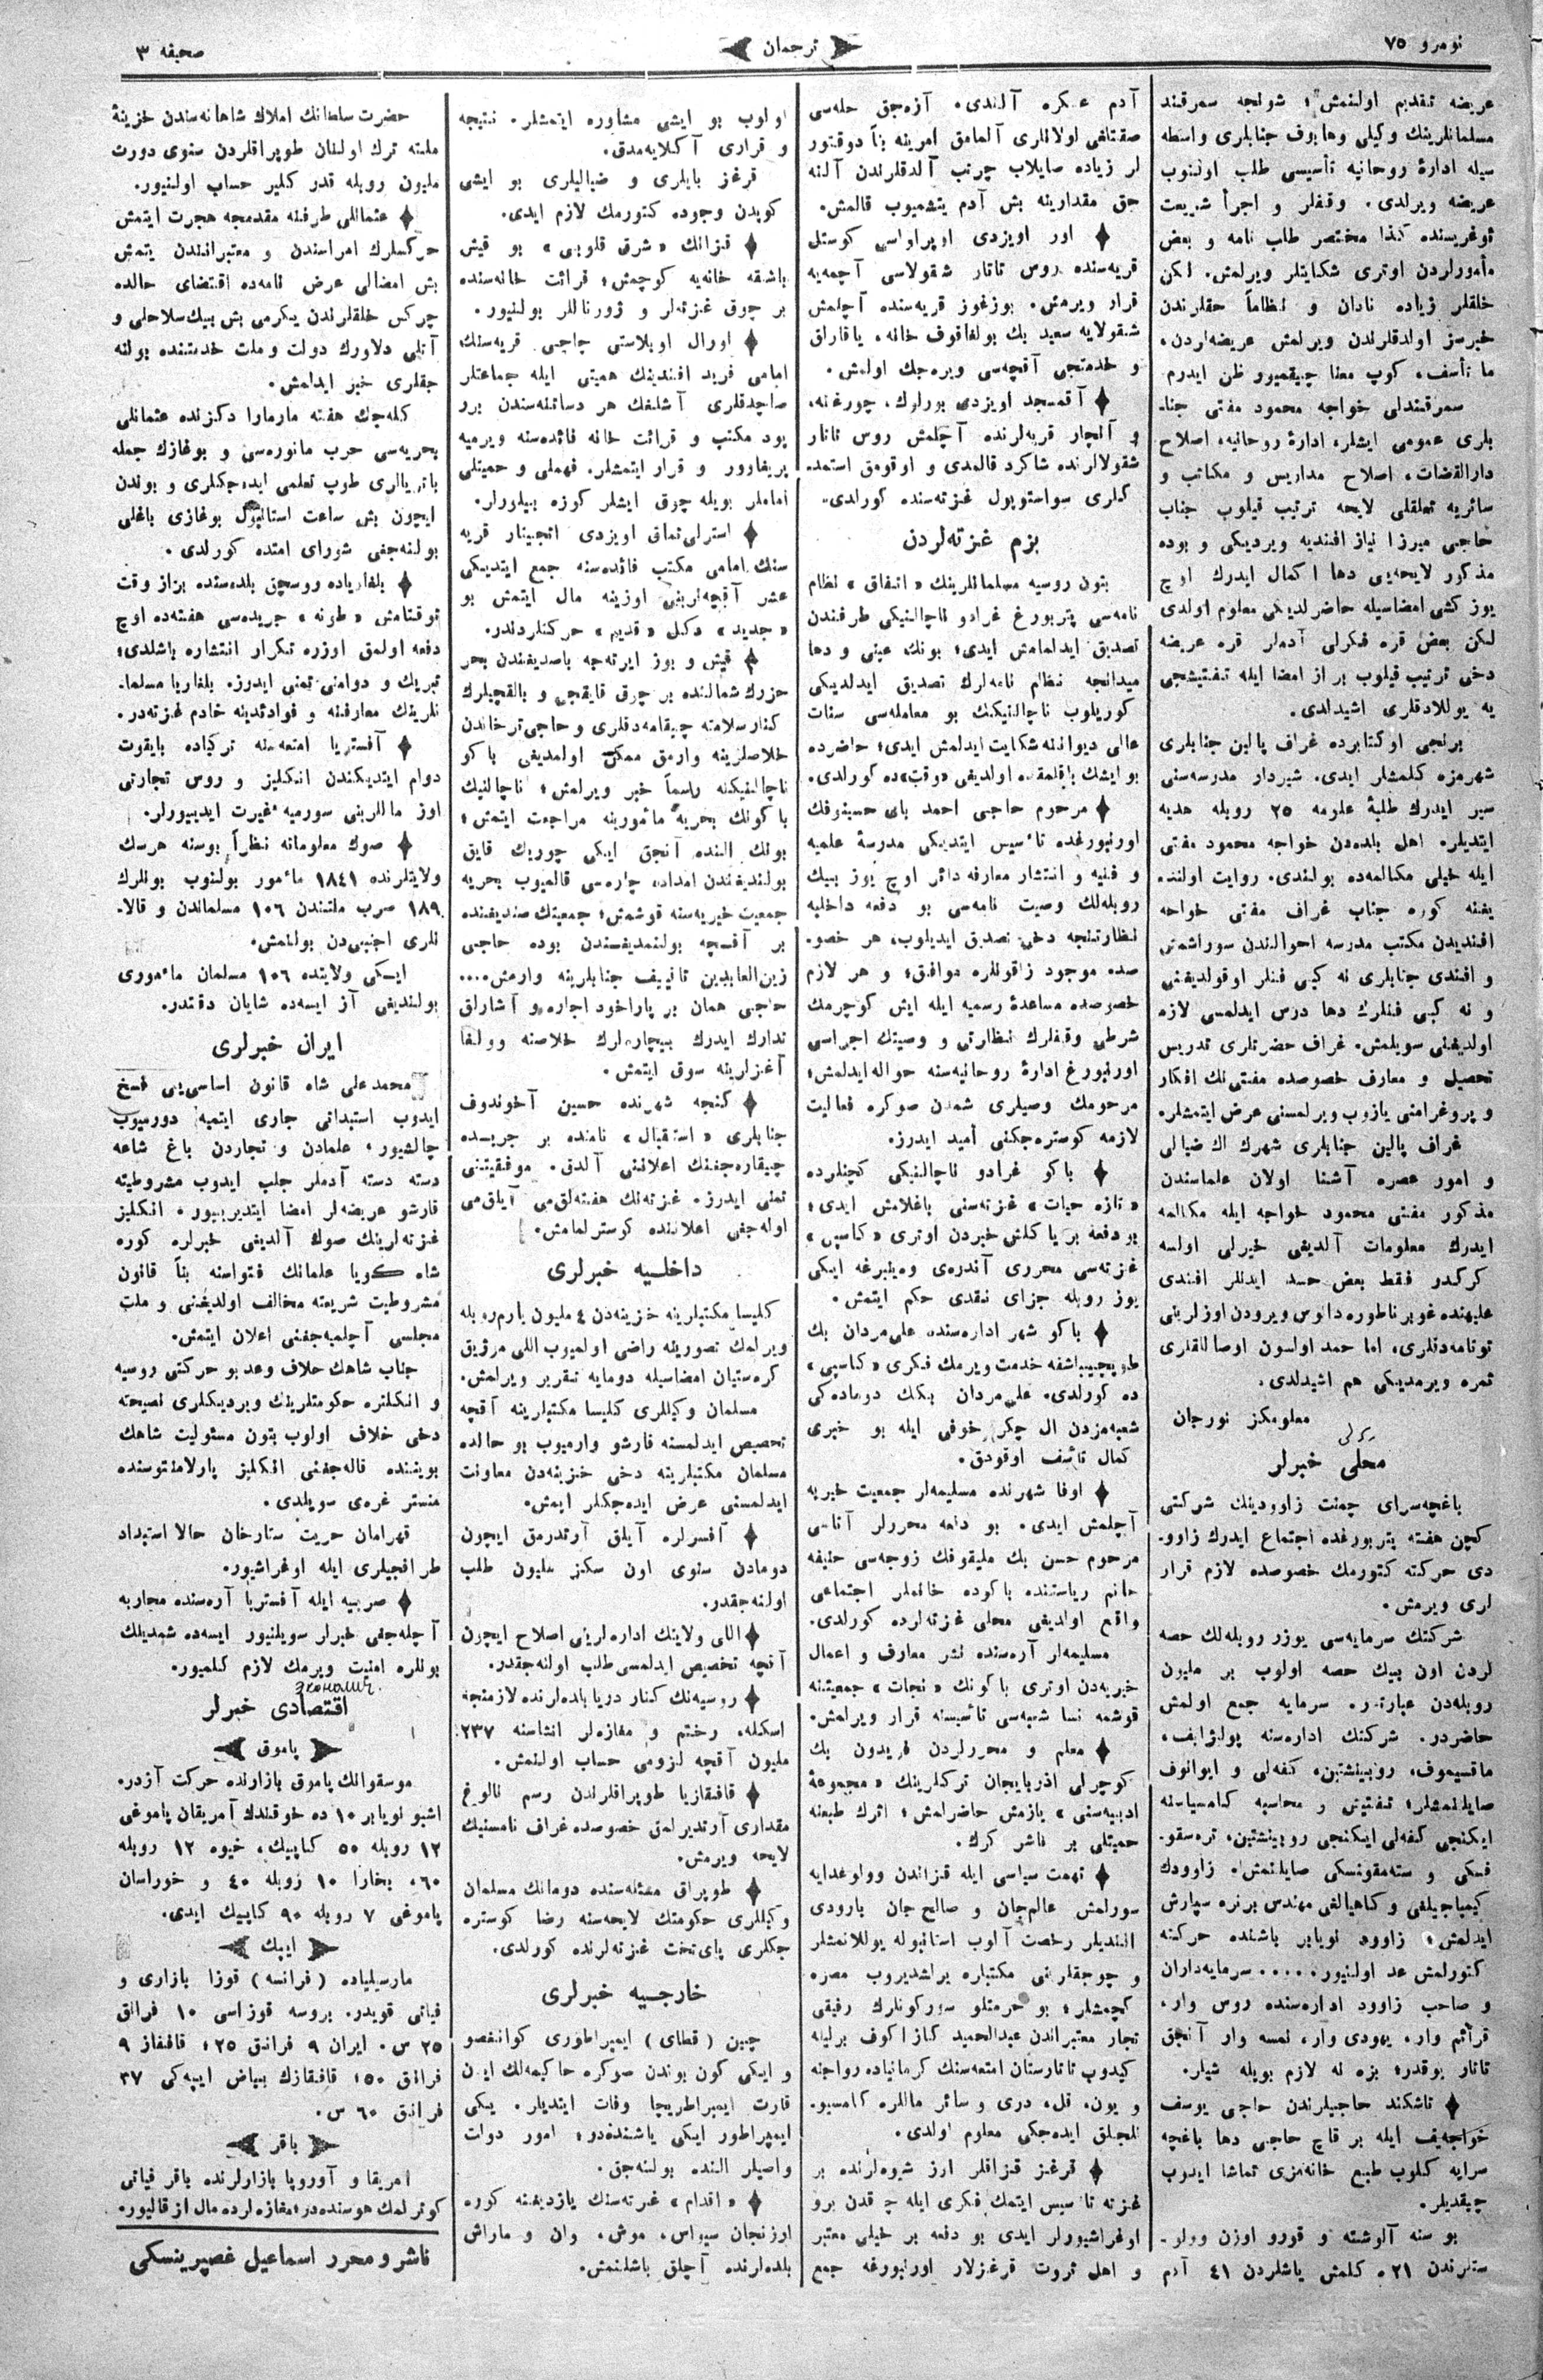 نومرو ٧٥
ترجمان
صحیفه ٣
عریضه تقدیم اولنمش؛ شولجه سمرقند
مسلمانلرینك وکیلی وهابوف جنابلری واسطه
سیله ادارهٔ روحانیه تأسیسی طلب اولنوب
عریضه ویرلدی. وقفلر و اجرأ شریعت
توغریسنده کذا مختصر طلب نامه و بعض
مأمورلردن اوتری شکایتلر ویرلمش. لکن
خلقلر زیاده نادان و نظاماً حقلرندن
خبرسز اولدقلرندن ویرلمش عریضه‌لردن،
ما تأسف، کوپ معنا چیقمیور ظن ایدرم.
سمرقندلی خواجه محمود مفتی جنا-
بلری عمومی ایشلر، ادارهٔ روحانیه، اصلاح
دارالقضات، اصلاح مدارس و مکاتب و
سائریه تعلقلی لایحه ترتیب قیلوب جناب
حاجی میرزا نیاز افندیه ویردیکی و بوده
مذکور لایحه‌یی دها اکمال ایدرك اوچ
یوز کشی امضاسیله حاضرلدیکی معلوم اولدی
لکن بعض قره فکرلی آدملر قره عریضه
دخی ترتیب قیلوب براز امضا ایله تفتیشجی
یه یوللادقلری اشیدلدی.
برنجی اوکتابرده غراف پالین جنابلری
شهرمزه کلمشلر ایدی. شیردار مدرسه‌سنی
سیر ایدرك طلبهٔ علومه ٢٥ روبله هدیه
ایتدیلر. اهل بلده‌دن خواجه محمود مفتی
ایله خیلی مکالمه‌ده بولندی. روایت اولند-
یغنه کوره جناب غراف مفتی خواجه
افندیدن مکتب مدرسه احوالندن سوراشمش
و افندی جنابلری نه کبی فنلر اوقولدیغنی
و نه کبی فنلرك دها درس ایدلمسی لازم
اولدیغنی سویلمش. غراف حضرتلری تدریس
تحصیل و معارف خصوصده مفتی‌نك افکار
و پروغرامنی یازوب ویرلمسنی عرض ایتمشلر.
غراف پالین جنابلری شهرك اك ضیالی
و امور عصره آشنا اولان علماسندن
مذکور مفتی محمود خواجه ایله مکالمه
ایدرك معلومات آلدیغی خیرلی اولسه
کرکدر فقط بعض حسد ایدنلر افندی
علیهنده غوبرناطوره دانوس ویرودن اوزلرینی
توتامه‌دقلری، اما حمد اولسون اوصاللقلری
ثمره ویرمدیکی هم اشیدلدی.
معلومکز نورجان
محلی خبرلر
باغچه‌سرای چمنت زاوودینك شرکتی
کچن هفته پتربورغده اجتماع ایدرك زاوو-
دی حرکته کتورمك خصوصده لازم قرار
لری ویرمش.
شرکتك سرمایه‌سی یوزر روبله‌لك حصه
لردن اون بیك حصه اولوب بر ملیون
روبله‌دن عبارتدر. سرمایه جمع اولمش
حاضردر. شرکتك اداره‌سنه پولژایف،
ماقسیموف، روبینشتین، کفه‌لی و ایوانوف
صایلنمشلر؛ تفتیش و محاسبه کامسیاسنه
ایکنجی کفه‌لی ایکنجی روبینشتین، تره‌سقو-
فسکی و سته‌مقونسکی صایلنمش. زاوودك
کیمیاجیلغی و کاهیالغی مهندس برنره سپارش
ایدلمش؛ زاوود نویابر باشنده حرکته
کتورلمش عد اولنیور..... سرمایه‌داران
و صاحب زاوود اداره‌سنده روس وار،
قرائم وار، یهودی وار، نمسه وار آنجق
تاتار یوقدر؛ بزه نه لازم بویله شیلر.
تاشکند حاجیلرندن حاجی یوسف
خواجه‌یف ایله بر قاچ حاجی دها باغچه
سرایه کلوب طبع خانه‌مزی تماشا ایدوب
چیقدیلر.
بو سنه آلوشته و قورو اوزن وولو-
ستلرندن ٢١ه کلمش یاشلردن ٤١ آدم
آدم عسکره آلندی. آزه‌جق حله‌سی
صقتلغی اولانلری آلمامق امرینه بناً دوقتور
لر زیاده صایلاب چرتب آلدقلرندن آلنه
جق مقدارینه بش آدم یتشمیوب قالمش.
اور اویزدی اوپراواسی کوستل
قریه‌سنده روس تاتار شقولاسی آچمه‌یه
قرار ویرمش. بوزغوز قریه‌سنده آچلمش
شقولایه سعید بك بولغاقوف خانه، یاقارلق
و خدمتجی آقچه‌سی ویره‌جك اولمش.
آقمسجد اویزدی بورلوك، چورغنه،
و آلچار قریه‌لرنده آچلمش روس تاتار
شقولالرنده شاکرد قالمدی و اوقومق استمد-
کلری سواستوپول غزته‌سنده کورلدی.
بزم غزته‌لردن
بتون روسیه مسلمانلرینك «اتفاق» نظام
نامه‌سی پتربورغ غرادو ناچالنیکی طرفندن
تصدیق ایدلمامش ایدی؛ بونك عینی و دها
میدانجه نظام نامه‌لرك تصدیق ایدلدیکی
کوریلوب ناچالنیکنك بو معامله‌سی سنات
عالی دیواننه شکایت ایدلمش ایدی؛ حاضرده
بو ایشك باقلمقده اولدیغی «وقت»ده کورلدی.
مرحوم حاجی احمد بای حسینوفك
اورنبورغده تأسیس ایتدیکی مدرسهٔ علمیه
و فنیه و انتشار معارفه دائر اوچ یوز بیك
روبله‌لك وصیت نامه‌سی بو دفعه داخلیه
نظارتنجه دخی تصدیق ایدیلوب، هر خصو-
صده موجود زاقونلره موافق؛ و هر لازم
خصوصده مساعدهٔ رسمیه ایله ایش کوچرمك
شرطی وقفلرك نظارتی و وصیتك اجراسی
اورنبورغ ادارهٔ روحانیه‌سنه حواله ایدلمش؛
مرحومك وصیلری شمدن صوکره فعالیت
لازمه کوستره‌جکنی أمید ایدرز.
باکو غرادو ناچالنیکی کچنلرده
«تازه حیات» غزته‌سنی باغلامش ایدی؛
بو دفعه بر یاکلش خبردن اوتری «کاسپی»
غزته‌سی محرری آندره‌ی وه‌ینبرغه ایکی
یوز روبله جزای نقدی حکم ایتمش.
باکو شهر اداره‌سنده علی‌مردان بك
طوپچیباشفه خدمت ویرمك فکری «کاسپی»
ده کورلدی. علی‌مردان بیکك دوماده‌کی
شعبه‌مزدن ال چکر خوفی ایله بو خبری
کمال تأسف اوقودق.
اوفا شهرنده مسلیمه‌لر جمعیت خیریه
آچلمش ایدی. بو دفعه محررلر آتاسی
مرحوم حسن بك ملیقوفك زوجه‌سی حنیفه
خانم ریاستنده باکوده خانملر اجتماعی
واقع اولدیغی محلی غزته‌لرده کورلدی.
مسلیمه‌لر آره‌سنده نشر معارف و اعمال
خیریه‌دن اوتری باکونك «نجات» جمعیتنه
قوشمه نسا شعبه‌سی تأسیسنه قرار ویرلمش.
معلم و محررلردن فریدون بك
کوچرلی اذربایجان ترکلرینك «مجموعهٔ
ادبیه‌سنی» یازمش حاضرلمش؛ اثرك طبعنه
حمیتلی بر ناشر کرك.
تهمت سیاسی ایله قزاندن وولوغدایه
سورلمش عالم‌جان و صالح‌جان بارودی
افندیلر رخصت آلوب استانبوله یوللانمشلر
و چوجقلرنی مکتبلره یراشدیروب مصره
کچمشلر؛ بو حرمتلو سورکونلرك رفیقی
تجار معتبراندن عبدالحمید کازاکوف برلینه
کیدوب تاتارستان امتعه‌سنك کرمانیاده رواجنه
و یون، قل، دری و سائر ماللره کامسیو-
نلجلق ایده‌جکی معلوم اولدی.
قرغز قزاقلر ارز شیوه‌لرنده بر
غزته تأسیس ایتمك فکری ایله چوقدن برو
اوغراشیورلر ایدی بو دفعه بر خیلی معتبر
و اهل ثروت قرغزلار اورنبورغه جمع
اولوب بو ایشی مشاوره ایتمشلر. نتیجه
و قراری آکلایه‌مدق.
قرغز بایلری و ضیالیلری بو ایشی
کوپدن وجوده کتورمك لازم ایدی.
قزانك «شرق قلوبی» بو قیش
باشقه خانه‌یه کوچمش؛ قرائت خانه‌سنده
بر چوق غزته‌لر و ژورناللر بولنیور.
اورال اوبلاستی جاجی قریه‌سنك
امامی فرید افندینك همتی ایله جماعتلر
صاچدقلری آشلغك هر دساتنه‌سندن برر
پود مکتب و قرائت خانه فائده‌سنه ویرمیه
پریغاوور و قرار ایتمشلر. فهملی و حمیتلی
اماملر بویله چوق ایشلر کوره بیلورلر.
استرلی‌تماق اویزدی اتجینار قریه
سنك امامی مکتب فائده‌سنه جمع ایتدیکی
عشر آقچه‌لرینی اوزینه مال ایتمش بو
«جدید» دکل «قدیم» حرکتلردندر.
قیش و بوز ایرته‌جه باصدیغندن بحر
حزرك شمالنده بر چوق قایقجی و بالقچیلرك
کنار سلامته چیقامه‌دقلری و حاجی‌ترخاندن
خلاصلرینه وارمق ممکن اولمدیغی باکو
ناچالنیکنه رسماً خبر ویرلمش؛ ناچالنیك
باکونك بحریه مأمورینه مراجعت ایتمش؛
بونك النده آنجق ایکی چوریك قایق
بولندیغندن امداد، چاره‌سی قالمیوب بحریه
جمعیت خیریه‌سنه قوشمش؛ جمعیتك صندیغنده
بر آقسچه بولنمدیغندن بوده حاجی
زین‌العابدین تاغییف جنابلرینه وارمش....
حاجی همان بر پاراخود اجاره و آشارلق
تدارك ایدرك بیچاره‌لرك خلاصنه وولغا
آغزلرینه سوق ایتمش.
کنجه شهرنده حسین آخوندوف
جنابلری «استقبال» نامنده بر جریده
چیقاره‌جغنك اعلاننی آلدق. موفقیتنی
تمنی ایدرز. غزته‌نك هفته‌لق‌می آیلق‌می
اوله‌جغی اعلاننده کوسترلمامش.
داخلیه خبرلری
کلیسا مکتبلرینه خزینه‌دن ٤ ملیون یارم روبله
ویرلمك تصورینه راضی اولمیوب اللی مرژیق
کره‌ستیان امضاسیله دومایه تقریر ویرلمش.
مسلمان وکیللری کلیسا مکتبلرینه آقچه
تحصیص ایدلمسنه قارشو وارمیوب بو حالده
مسلمان مکتبلرینه دخی خزینه‌دن معاونت
ایدلمسنی عرض ایده‌جکلر ایمش.
آفسرلره آیلق آرتدرمق ایچون
دومادن سنوی اون سکز ملیون طلب
اولنه‌جقدر.
اللی ولاینك اداره‌لرینی اصلاح ایچون
آقچه تخصیص ایدلمسی طلب اولنه‌جقدر.
روسیه‌نك کنار دریا بلده‌لرنده لازمنجه
اسکله، رختم و مغازه‌لر انشاسنه ٢٣٧
ملیون آقچه لزومی حساب اولنمش.
قافقازیا طوپراقلرندن رسم نالوغ
مقداری آرتدیرلمق خصوصده غراف نامسنیك
لایحه ویرمش.
طوپراق مسئله‌سنده دومانك مسلمان
وکیللری حکومتك لایحه‌سنه رضا کوستره
جکلری پای‌تخت غزته‌لرنده کورلدی.
خارجیه خبرلری
چین (قطای) ایمپراطوری کوانغصو
و ایکی کون بوندن صوکره حاکیمه‌لك ایدن
قارت ایمپراطریچا وفات ایتدیلر. یکی
ایمپراطور ایکی یاشنده‌در؛ امور دولت
واصیلر النده بولنه‌جق.
«اقدام» غزته‌سنك یازدیغنه کوره
ارزنجان سیواس، موش، وان و ماراش
بلده‌لرنده آچلق باشلنمش.
حضرت سلطانك املاك شاهانه‌سندن خزینهٔ
ملته ترك اولنان طوپراقلردن سنوی دورت
ملیون روبله قدر کلیر حساب اولنیور.
عثمانلی طرفنه مقدمجه هجرت ایتمش
چرکسلرك امراسندن و معتبراندن یتمش
بش امضالی عرض نامه‌ده اقتضای حالده
چرکس خلقلرندن یکرمی بش بیك سلاحلی و
آتلی دلاورك دولت و ملت خدمتنده بولنه
جقلری خبر ایدلمش.
کله‌جك هفته مارمارا دکزنده عثمانلی
بحریه‌سی حرب مانوره‌سی و بوغازك جمله
باتریالری طوپ تعلمی ایده‌جکلری و بوندن
ایچون بش ساعت استانبول بوغازی باغلی
بولنه‌جغی شورای امتده کورلدی.
بلغاریاده روسچق بلده‌سنده براز وقت
توقتامش «طونه» جریده‌سی هفته‌ده اوچ
دفعه اولمق اوزره تکرار انتشاره باشلدی؛
تبریك و دوامنی تمنی ایدرز. بلغاریا مسلما-
نلرینك معارفنه و فوائدینه خادم غزته‌در.
آفستریا امتعه‌سنه ترکیاده بایقوت
دوام ایتدیکندن انکلیز و روس تجارتی
اوز ماللرینی سورمیه غیرت ایدییورلر.
صوك معلوماته نظراً بوسنه هرسك
ولایتلرنده ١٨٤١ مأمور بولنوب بونلرك
١٨٩ صرب ملتندن ١٠٦ مسلماندن و قالا-
نلری اجنبی‌دن بولنمش.
ایکی ولایتده ١٠٦ مسلمان مأموری
بولندیغی آز ایسه‌ده شایان دقتدر.
ایران خبرلری
محمد علی شاه قانون اساسی‌یی فسخ
ایدوب استبدانی جاری ایتمیه دورمیوب
چالشیور، علمادن و تجاردن باغ شاهه
دسته دسته آدملر جلب ایدوب مشروطیته
قارشو عریضه‌لر امضا ایتدیریییور. انکلیز
غزته‌لرینك صوك آلدیغی خبرلره کوره
شاه کویا علمانك فتواسنه بناً قانون
مشروطیت شریعته مخالف اولدیغنی و ملت
مجلسی آچلمیه‌جغنی اعلان ایتمش.
جناب شاهك خلاف وعد بو حرکتی روسیه
و انکلتره حکومتلرینك ویردیکلری نصیحته
دخی خلاف اولوب بتون مسئولیت شاهك
بویننده قاله‌جغنی انکلیز پارلامنتوسنده
منستر غره‌ی سویلدی.
قهرامان حریت ستارخان حالا استبداد
طرافجیلری ایله اوغراشیور.
صربیه ایله آفستریا آره‌سنده محاربه
آچله‌جغی خبرلر سویلنیور ایسه‌ده شمدیلك
بونلره امنیت ویرمك لازم کلمیور.
экономич.
اقتصادی خبرلر
پاموق
موسقوانك پاموق بازارنده حرکت آزدر.
اشبو نویابر ١٠ ده خوقندك آمریقان پاموغی
١٢ روبله ٥٠ کاپیك، خیوه ١٢ روبله
٦٠، بخارا ١٠ روبله ٤٠ و خوراسان
پاموغی ٧ روبله ٩٠ کاپیك ایدی.
ایپك
مارسیلیاده (فرانسه) قوزا بازاری و
فیاتی قویدر. بروسه قوزاسی ١٠ فرانق
٢٥ س. ایران ٩ فرانق ٢٥؛ قافقاز ٩
فرانق ٥٠؛ قافقازك بیاض ایپه‌کی ٣٧
فرانق ٦٠ س.
باقر
امریقا و آوروپا بازارلرنده باقر فیاتی
کوترلمك هوسنده‌در؛ مغازه‌لرده مال از قالیور.
ناشر و محرر اسماعیل غصپرینسکی